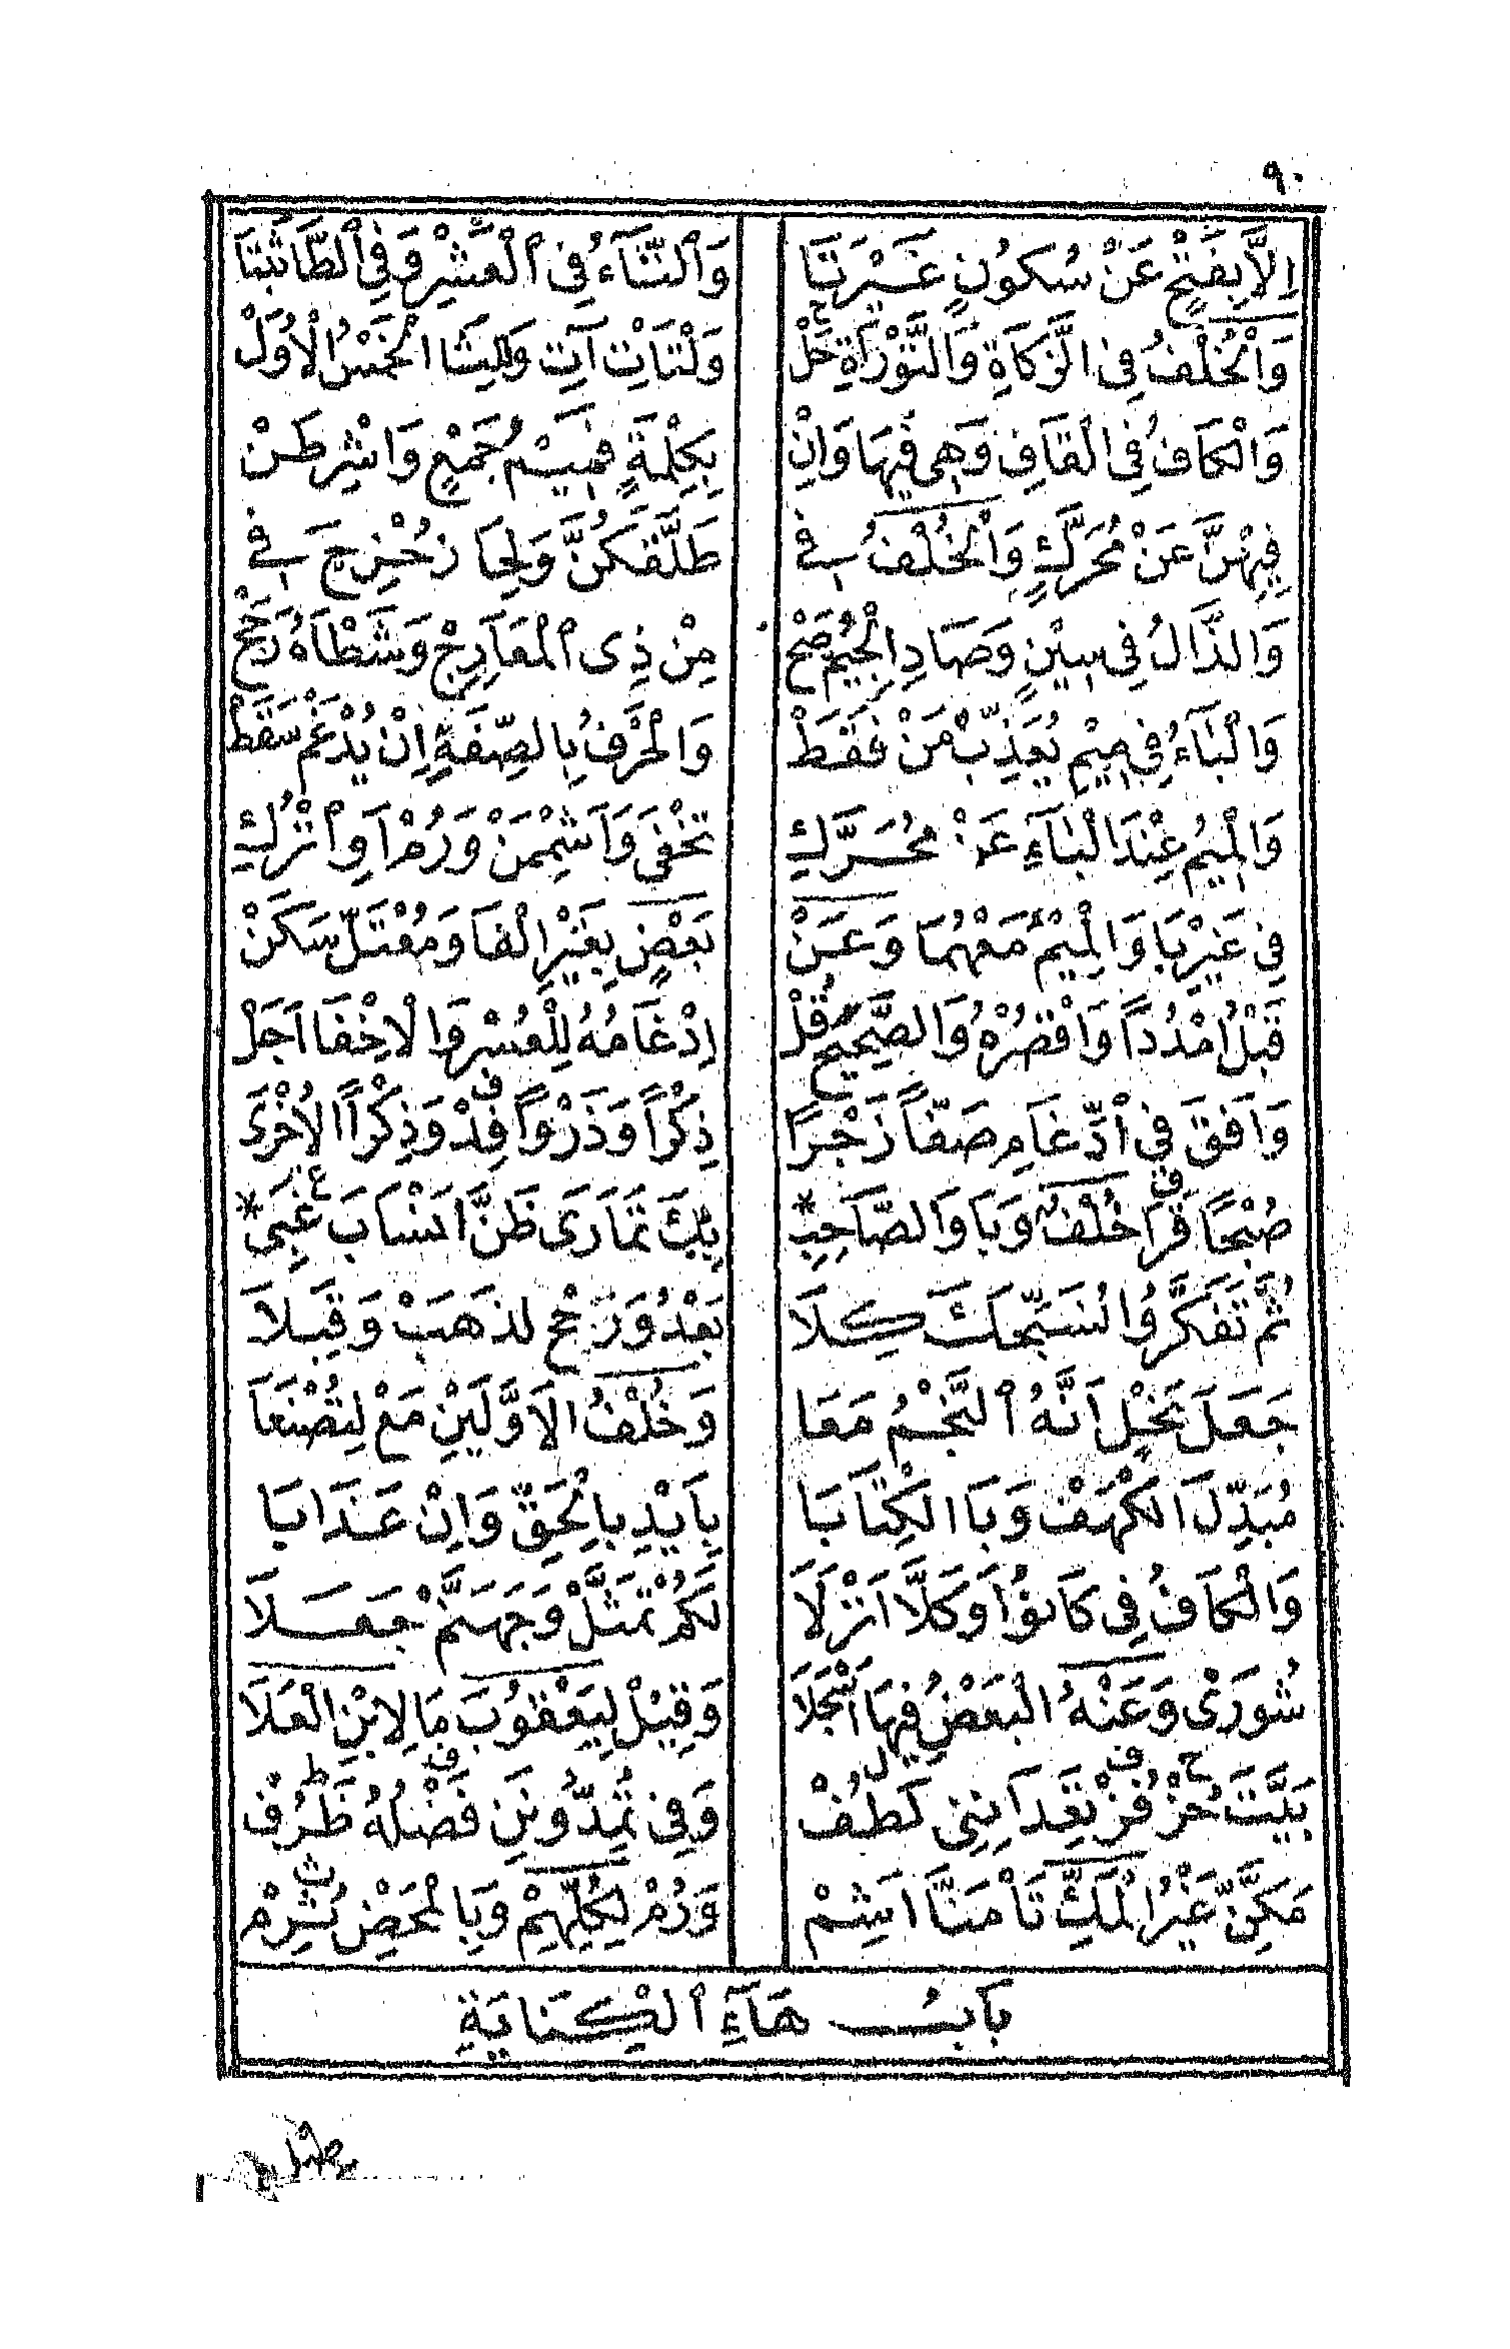 ٩٠
اِلاَّ بِفَتْحٍ عَنْ سُكُونٍ غَيْرَتَا وَالتَّآءُ فِى الْعَشْرِ وَفِى الطَّا ثَبَتَا
وَالْخُلْفُ فِى الزَّكَاةِ وَالتَّوْرَاةِ حَلّ وَلْتَاتِ آتِ وَلِثَا الْخَمْسُ الْأُوَلْ
وَالْكَافُ فِى الْقَافِ وَهِى فِيهَا وَاِنْ بِكِلْمَةٍ فَمِيْمُ جَمْعٍ وَاشْرِطَنْ
فِيهِنَّ عَنْ مُحَرَّكٍ وَالْخُلْفُ فِى طَلَّقَكُنَّ وَلِحَا زُحْزِحَ فِى
وَالذَّالُ فِى سِيْنٍ وَصَادِ الْجِيْمُ صَحْ مِنْ ذِى الْمَعَارِجْ وَشَطْأَهُ رَجَحْ
وَالْبَاءُ فِى مِيْمِ يُعَذِّبْ مَنْ فَقَطْ وَالْحَرْفُ بِالصِّفَةِ اِنْ يُدْغَمْ سَقَطْ
وَالْمِيْمُ عِنْدَ الْبَآءِ عَنْ مُحَرَّكِ تَخْفَى وَاَشْمِمَنْ وَرُمْ اَوِ اتْرُكِ
فِى غَيْرِ بَا وَالْمِيْمُ مَعْهُمَا وَعَنْ بَعْضٍ بِغَيْرِ الْفَا وَمُعْتَلّ سَكَنْ
قَبْلُ امْدُدًا وَاقْصُرْهُ وَالصَّحِيْحُ قُلْ اِدْغَامُهُ لِلْعُسْرِ وَالْاِخْفَا اَجَلْ
وَافَقَ فِى ادِّغَامِ صَفًّا زَجْرًا ذِكْرًا وَذَرْوًا فِدْ وَذِكْرًا الْاُخْرَى
صُبْحًا قَرَا خُلْفٌ وَبَا وَالصَّاحِبِ * بِكَ تَمَارَى ظَنَّ اَنْسَابَ غَبِى *
ثُمَّ تَفَكَّرُوا نُسَبِّحَكَ كِلاَ بَعْدُ وَرَجّحْ لَذَهَبْ وَقِبَلاَ
جَعَلَ نَحْلٍ اَنَّهُ النَّجْمُ مَعَا وَخُلْفُ الْاَوَّلَيْنِ مَعْ لِتُصْنَعَا
مُبَدِّلَ الْكَهْفْ وَبَا الْكِتَابَا بِاَيْدِ بِالْحَقِّ وَاِنْ عَذَابَا
وَالْكَافُ فِى كَانُوا وَكَلاَّ اَنْزَلاَ لَكُمْ تَمَثَّلْ وَجَهَنَّمْ جَعَلاَ
شُورَى وَعَنْهُ الْبَعْضُ فِيهَا اَسْجَلاَ وَقِيْلَ لِيَعْقُوبَ مَا لِابْنِ الْعَلاَ
بَيَّتَ حُزْ فُزْ تَعِدَانِنِى لَطُفْ وَفِى تُمِدُّونَنِ فَضْلُهُ ظَرُفْ
مَكَّنِّ غَيْرُ الْمَكِّ تَأْمَنَّا اَشِمْ وَرُمْ لِكُلِّهِمْ وَبِالْمَحْضِ ثَرِمْ
بَابُ هَآءِ الْكِنَايَةِ